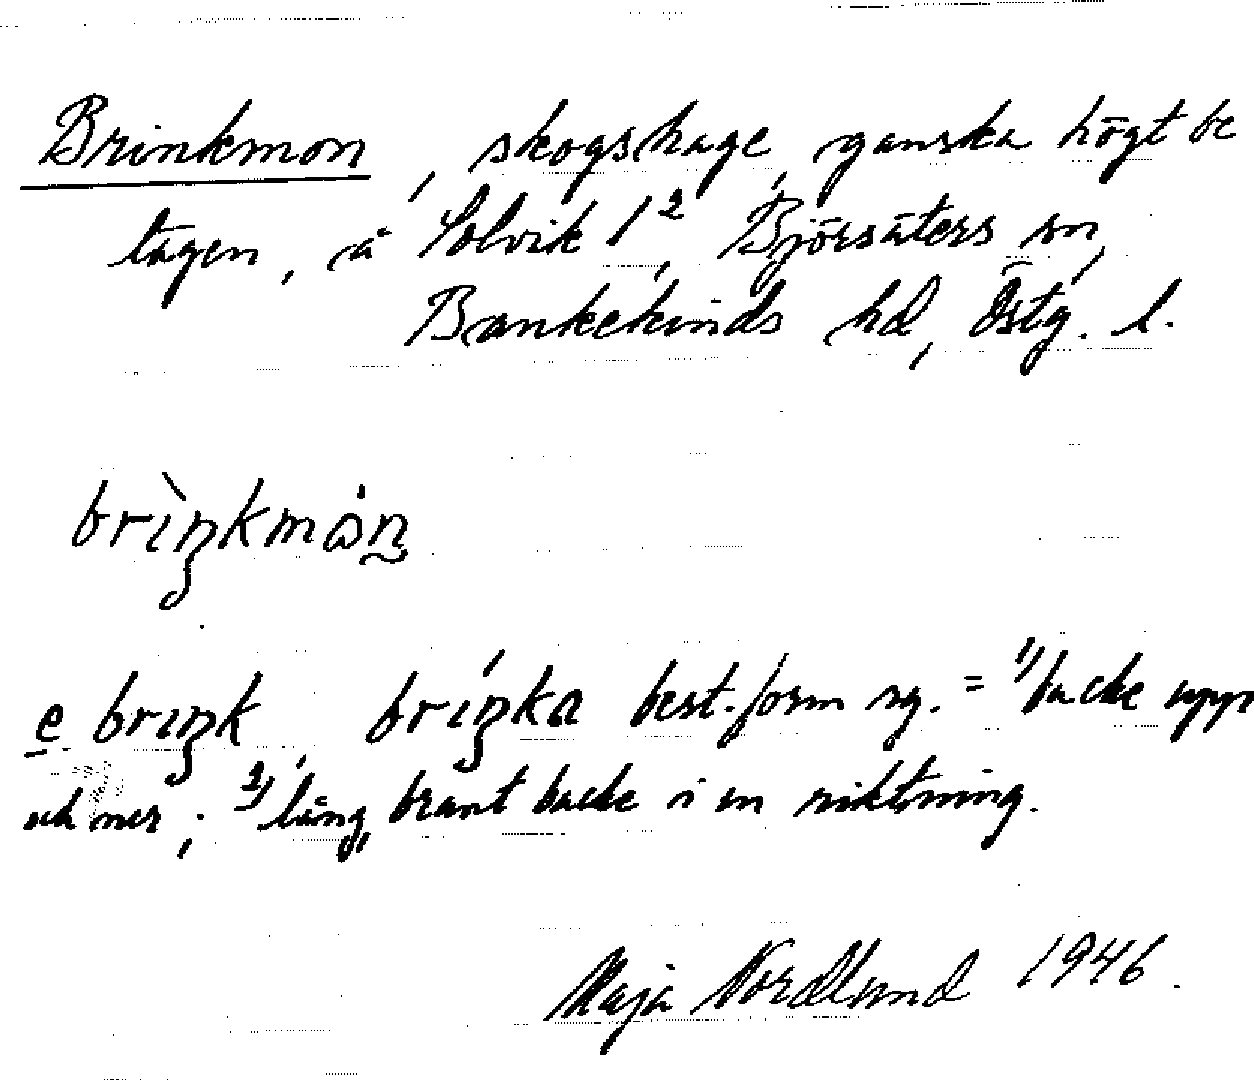 Brinkmon, skogshage, ganska högt be
lägen, å Solvik 1², Björsäters sn,
Bankekinds hd, Östg. l.
brìŋkmȯn̰
e briŋk, bríŋka best. form sg. = 1) backe upp
och ner; 2) lång, brant backe i en riktning.
Maja Nordlund 1946.